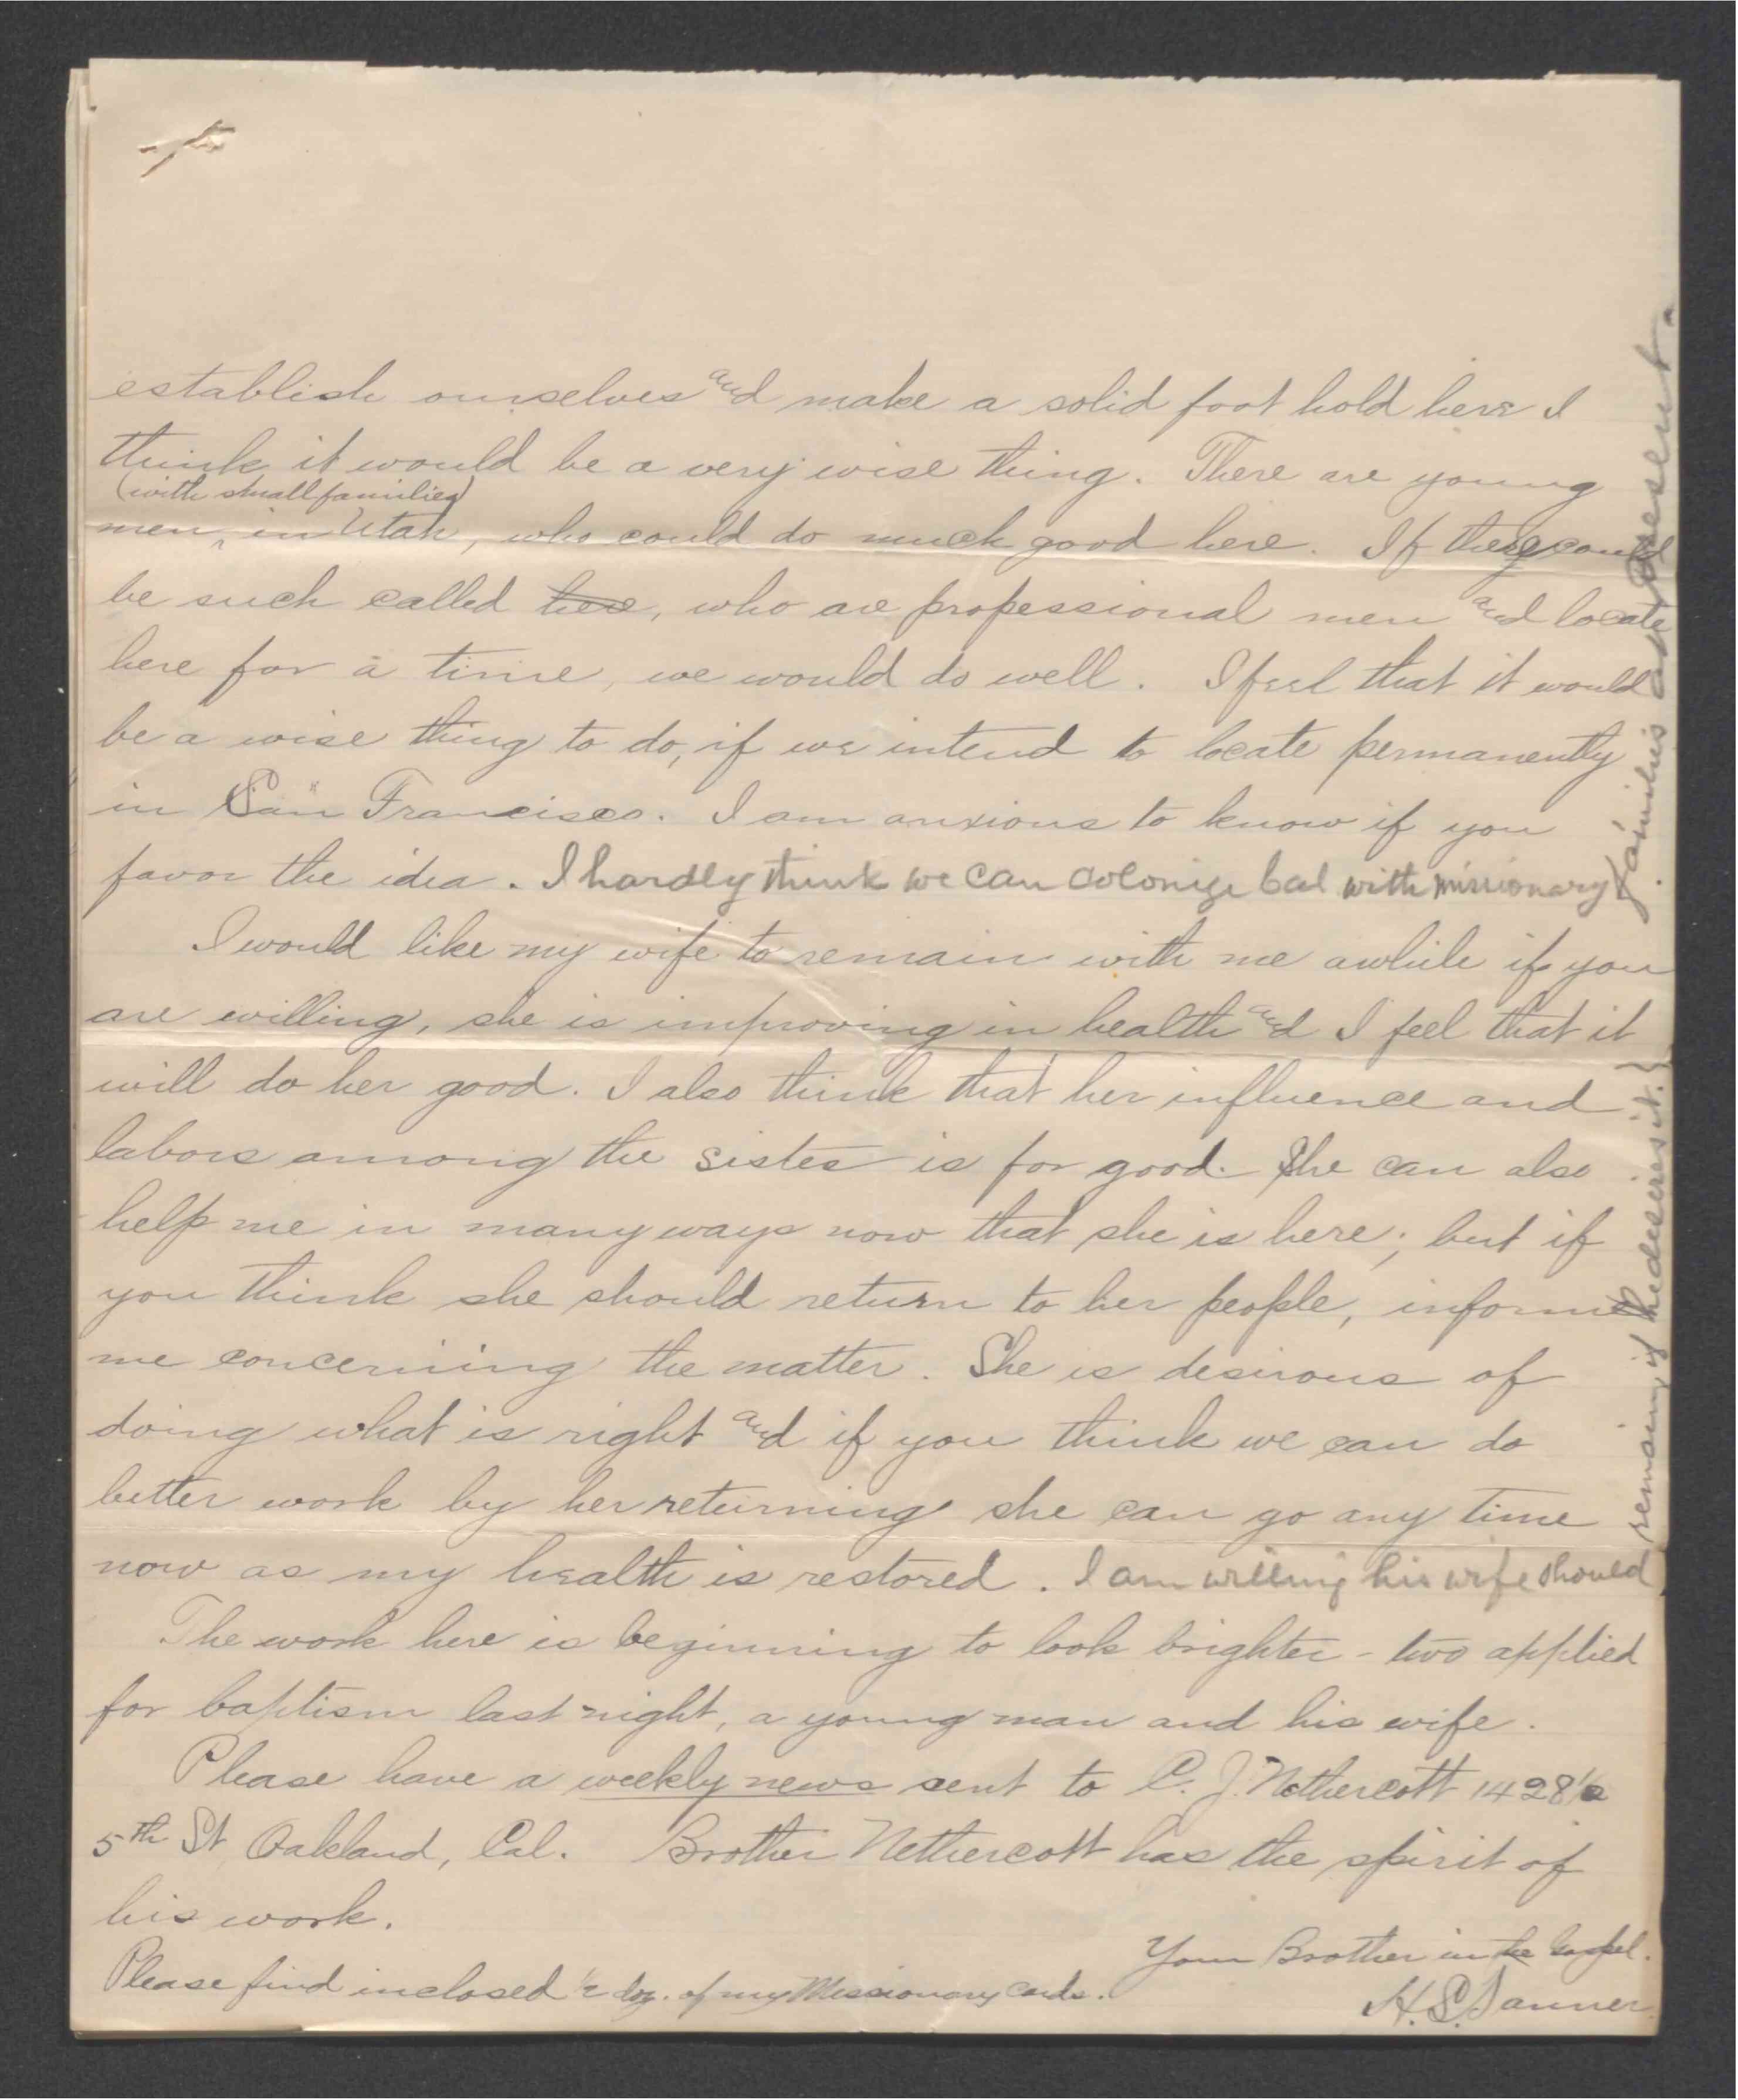 establish ourselves and make a solid foot hold here I
think it would be a very wise thing. There are young
(with small families)
men, in Utah, who could do much good here. If there could
be such called here, who are professional men and locate
here for a time, we would do well. I feel that it would
be a wise thing to do, if we intend to locate permanently
in San Francisco. I am anxious to know if you
favor the idea. I hardly think we can colonize Cal with missionary
families at present.
I would like my wife to remain with me awhile if you
are willing, she is improving in health and I feel that it
will do her good. I also think that her influence and
labors among the sister is for good. She can also
help me in many ways now that she is here; but if
you think she should return to her people, inform
me concerning the matter. She is desirous of
doing what is right and if you think we can do
better work by her returning she can go any time
now as my health is restored. I am willing his wife should
remain, if he desires it.}
The work here is beginning to look brighter - two applied
for baptism last night, a young man and his wife.
Please have a weekly news sent to C. J. Nethercott 1428½
5th St Oakland, Cal. Brother Nethercott has the spirit of
his work.
Your Brother in the Gospel.
Please find inclosed ½ doz. of my Missionary Cards.
H. S. Tanner